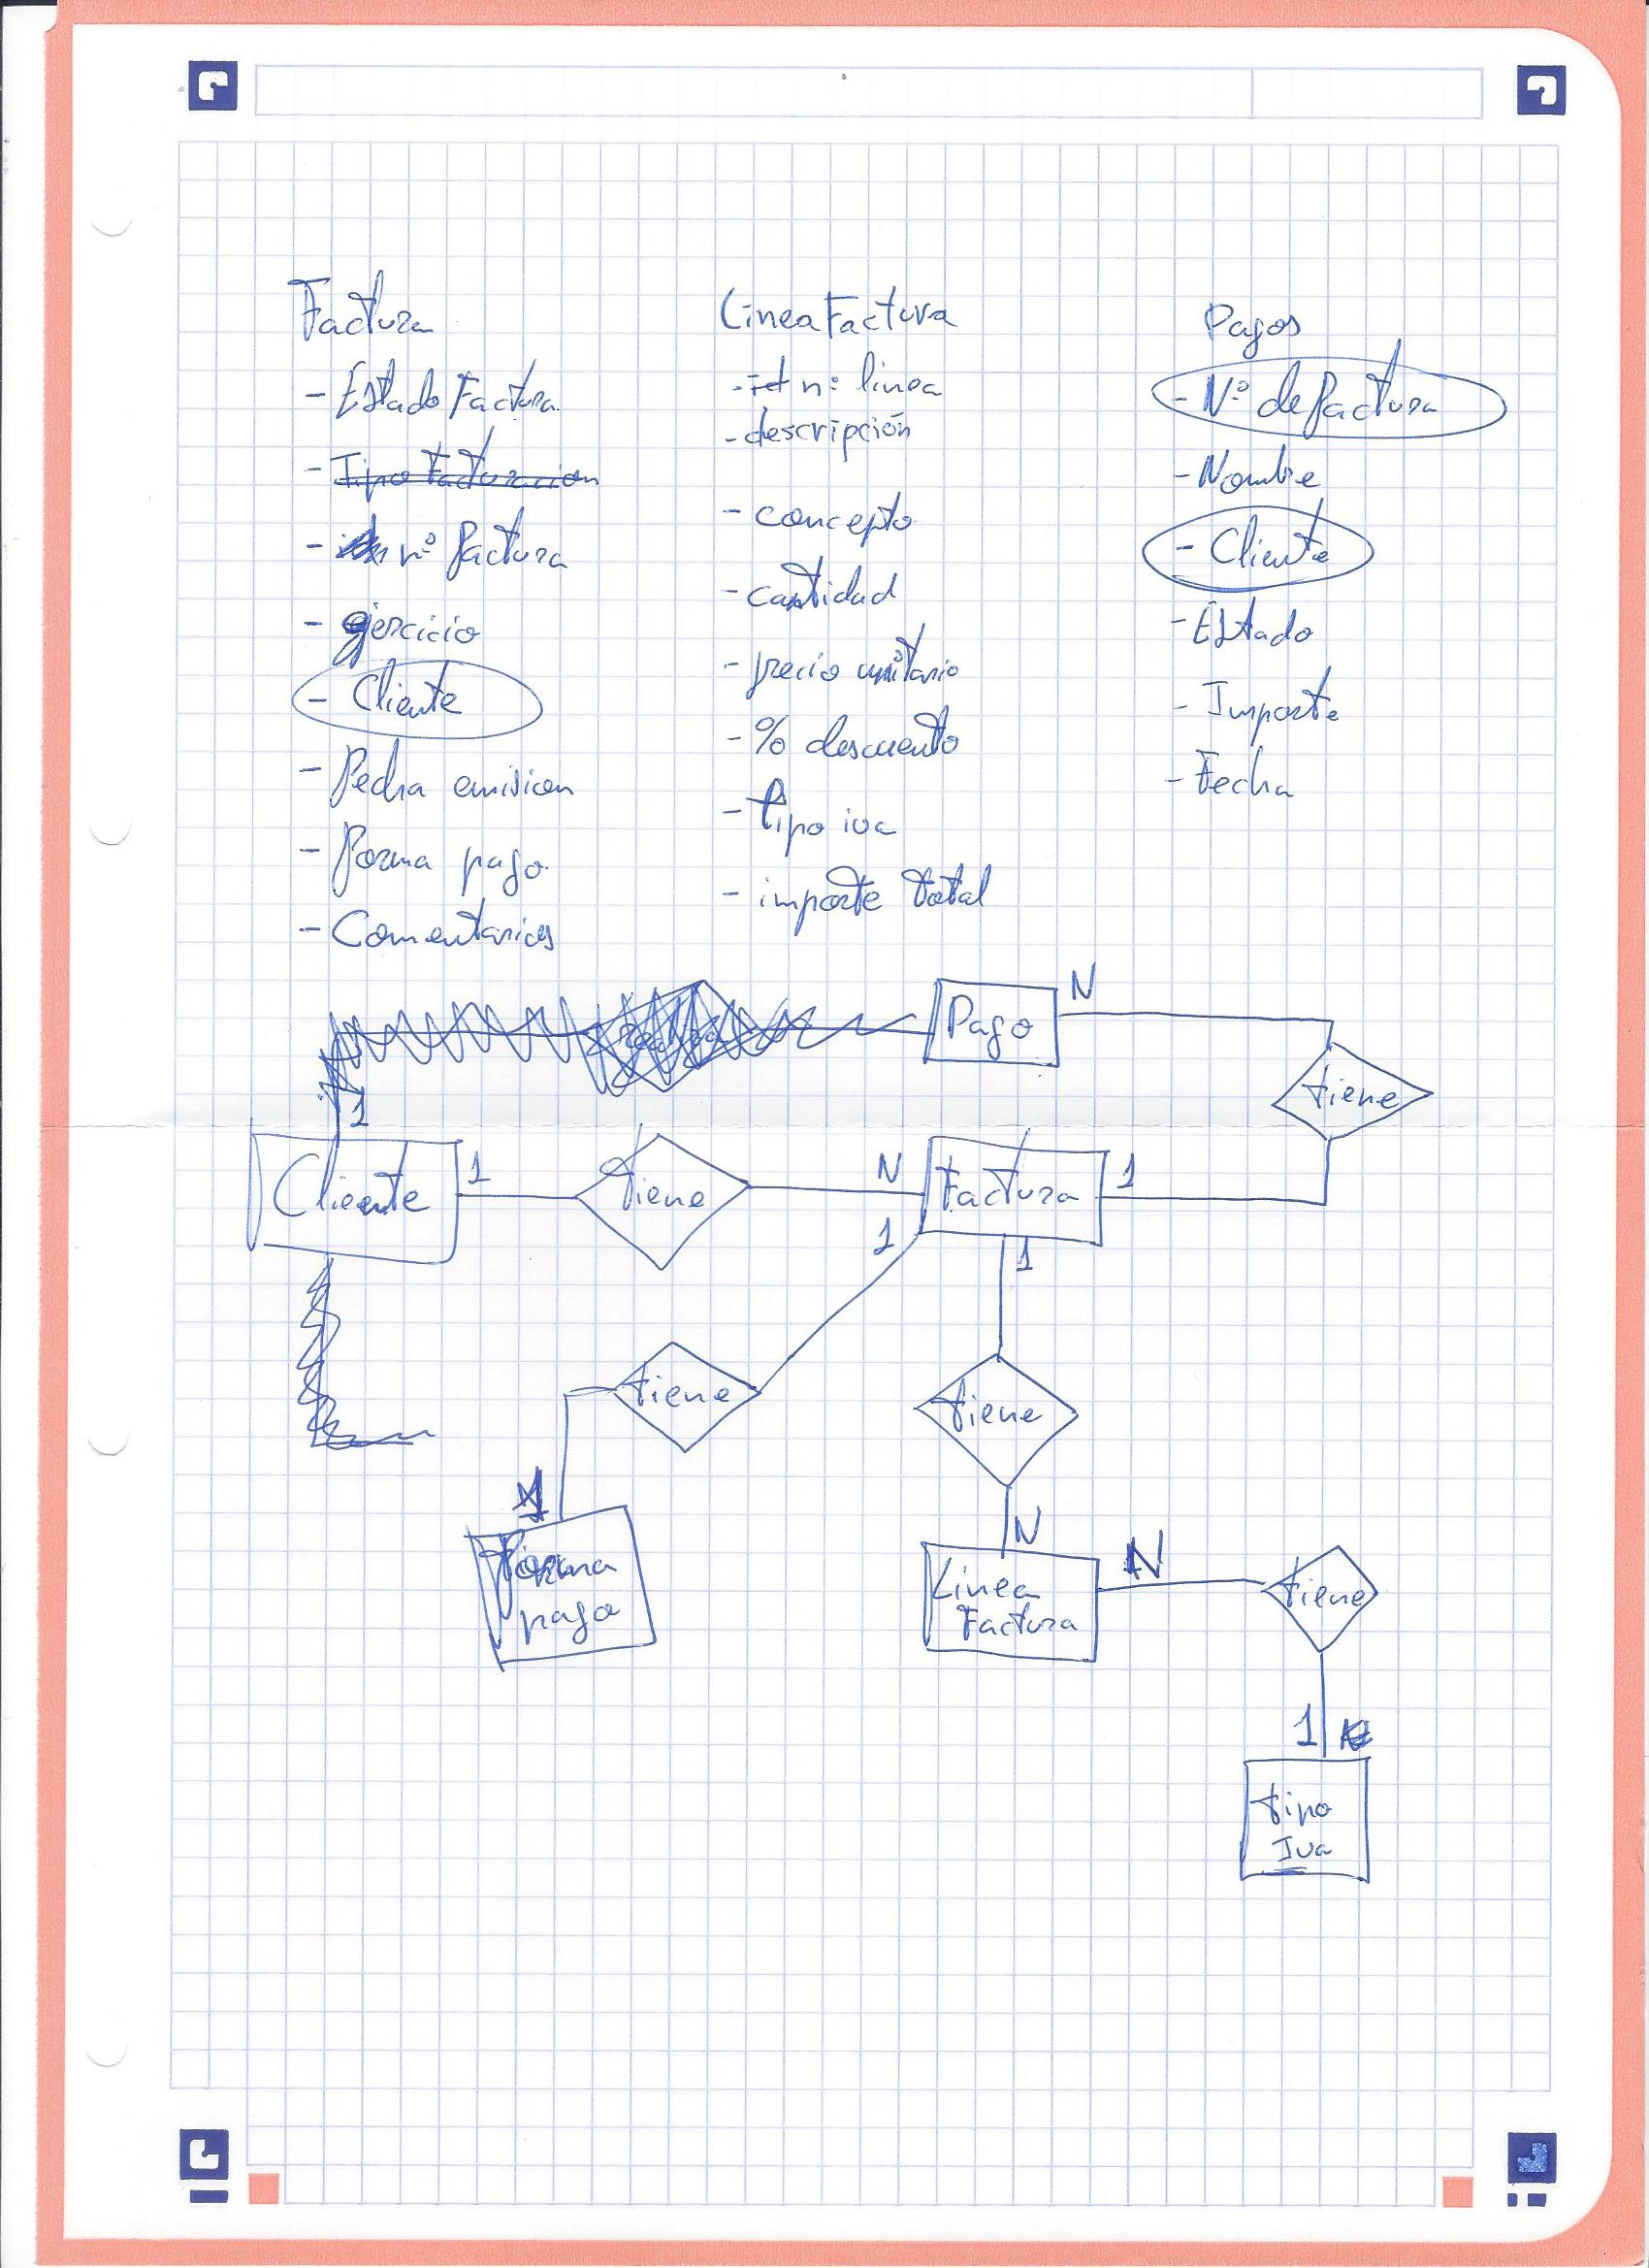 Factura
- Estado Factura
- Tipo Facturacion
- nº factura
- ejercicio
- Cliente
- Fecha emision
- Forma pago
- Comentarios
Linea Factura
- id nº linea
- descripción
- concepto
- cantidad
- precio unitario
- % descuento
- tipo iva
- importe total
Pagos
- Nº de factura
- Nombre
- Cliente
- Estado
- Importe
- Fecha
Pago N
tiene
1
Cliente 1 tiene N Factura 1
1 1
tiene tiene
1 N
Forma
pago
Linea
Factura
N tiene
1
tipo
Iva